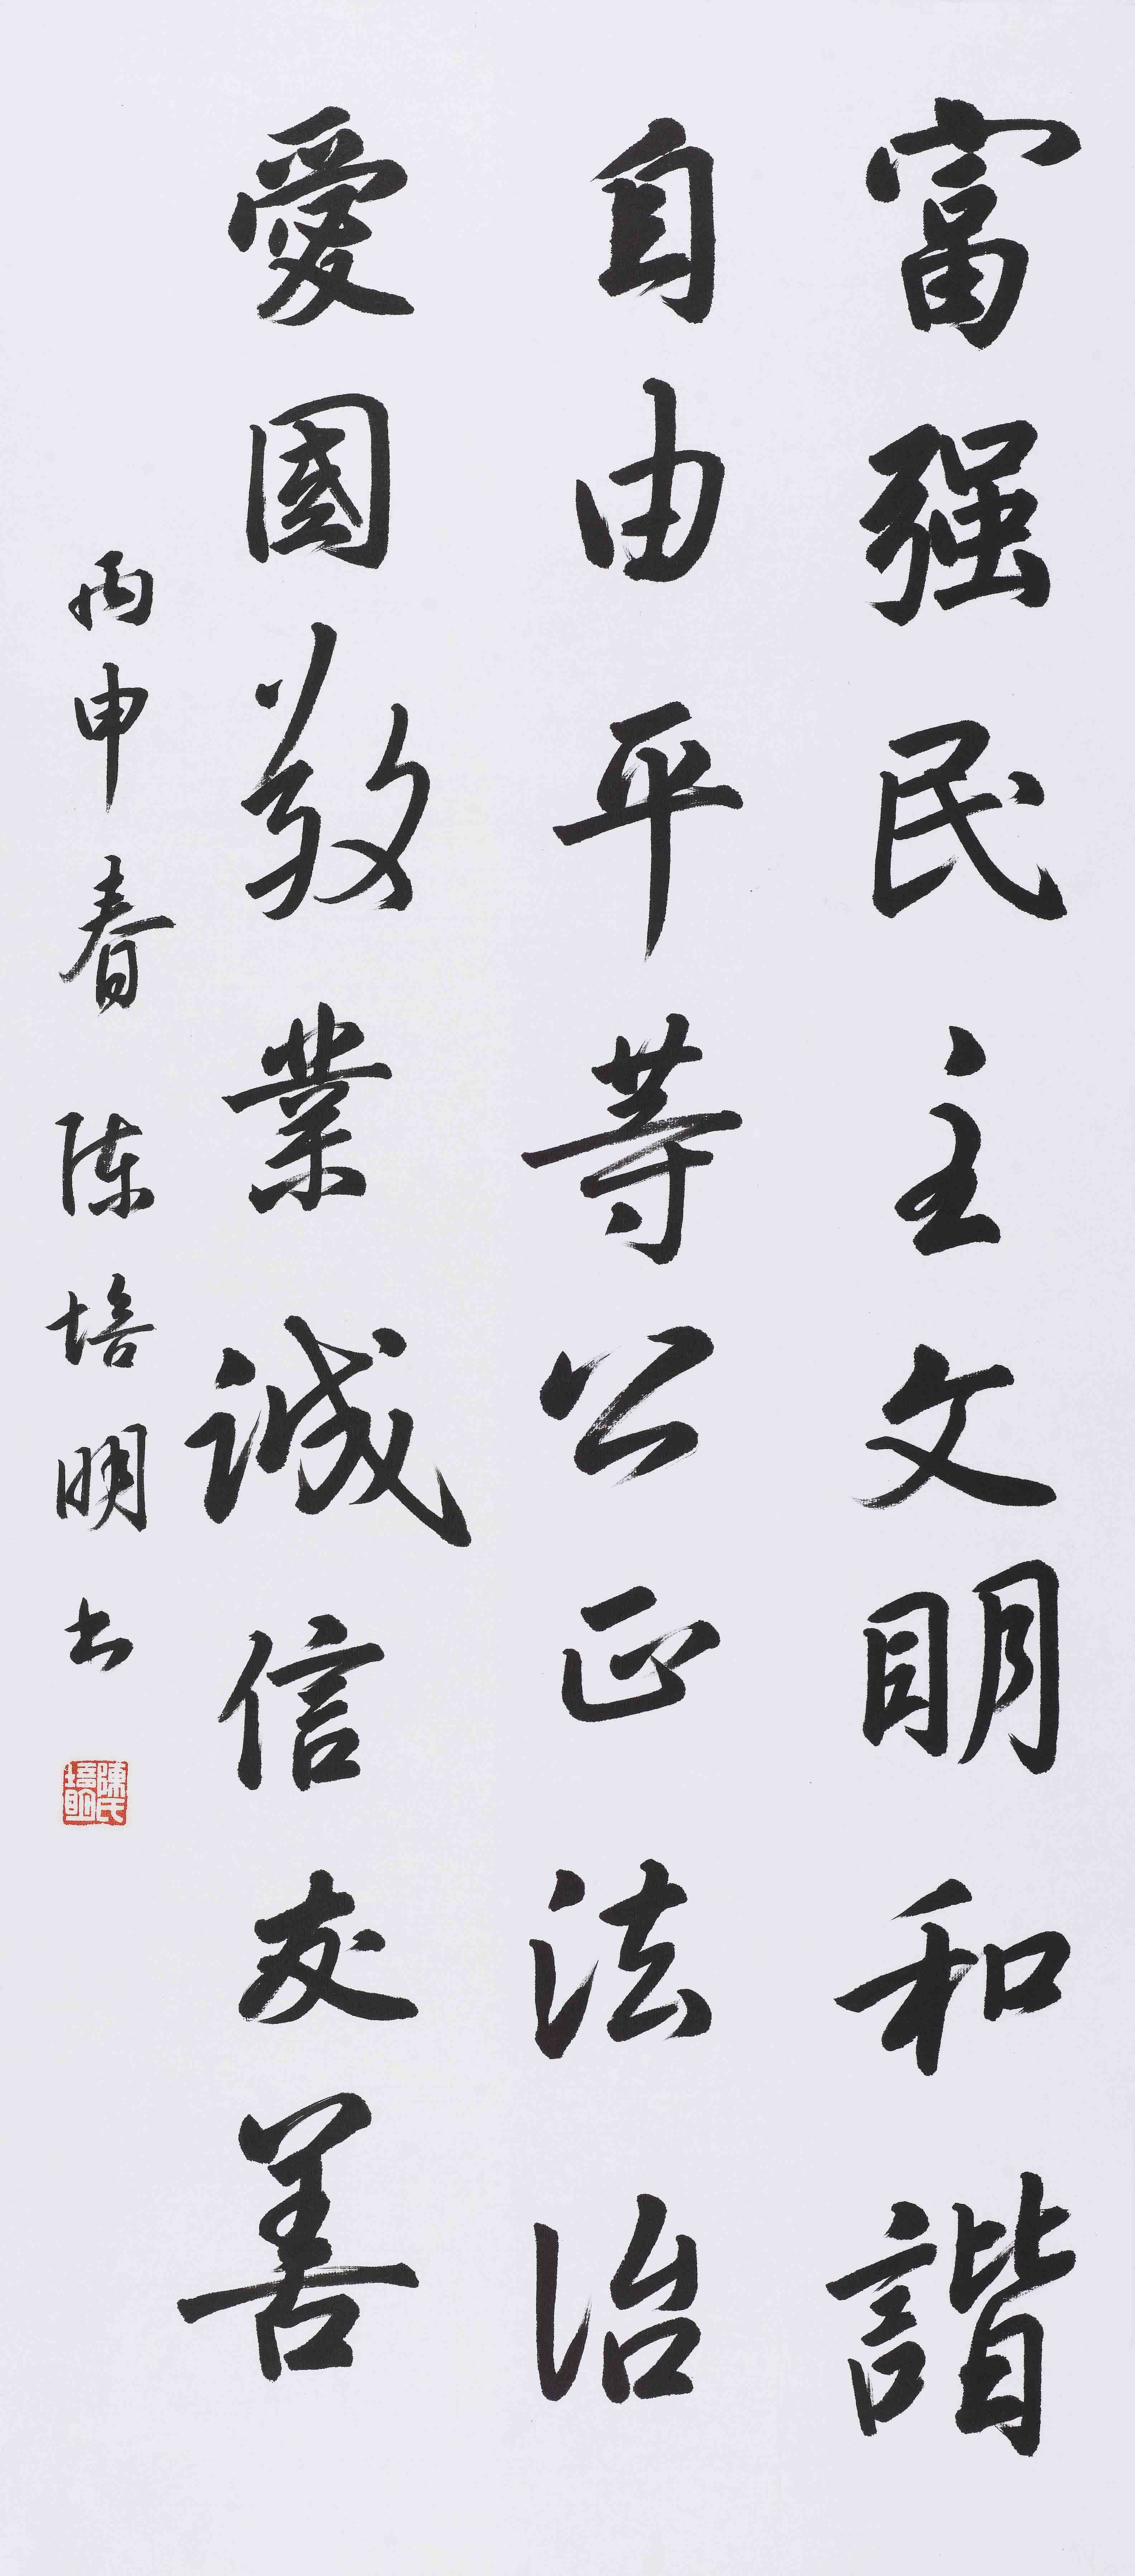 富强民主文明和諧
自由平等公正法治
愛國敬業誠信友善
丙申春陈培明书
陳氏培明